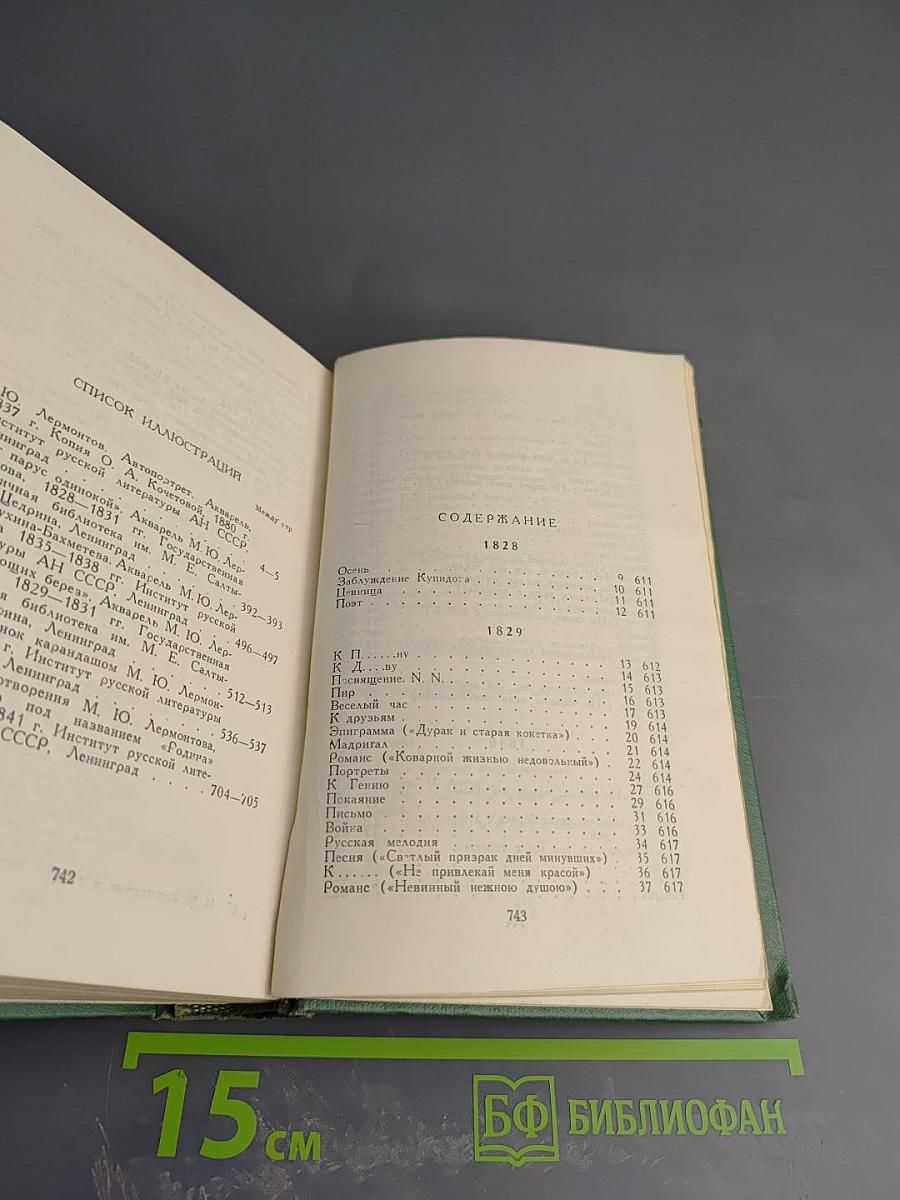 СПИСОК ИЛЛЮСТРАЦИЙ
Между стр
Ю. Лермонтов. Автопортрет. Акварель,
837 г. Копия О. А. Кочетовой. 1880 г.
ститут русской литературы АН СССР.
нинград . . . . . . . 4—5
парус одинокой». Акварель М. Ю. Лер-
ова, 1828—1831 гг. Государственная
ичная библиотека им. М. Е. Салты-
Щедрина, Ленинград . . . 392—393
ухина-Бахметева. Акварель М. Ю. Лер-
а 1835—1838 гг. Институт русской
уры АН СССР, Ленинград . . 496—497
ющих берез». Акварель М. Ю. Лер-
1829—1831 гг. Государственная
я библиотека им. М. Е. Салты-
рина, Ленинград . . . 512—513
нок карандашом М. Ю. Лермон-
г. Институт русской литературы
Ленинград . . . 536—537
отворения М. Ю. Лермонтова,
под названием «Родина»
841 г. Институт русской лите-
СССР, Ленинград . . . . 704—705
742
СОДЕРЖАНИЕ
1828
Осень . . . 9 611
Заблуждение Купидона . . . 10 611
Цевница . . . 11 611
Поэт . . . 12 611
1829
К П......ну . . . 13 612
К Д....ву . . . 14 613
Посвящение. N. N. . . . 15 613
Пир . . . 16 613
Веселый час . . . 17 613
К друзьям . . . 19 614
Эпиграмма («Дурак и старая кокетка») . . . 20 614
Мадригал . . . 21 614
Романс («Коварной жизнью недовольный») . 22 614
Портреты . . . 24 614
К Гению . . . 27 616
Покаяние . . . 29 616
Письмо . . . 31 616
Война . . . 33 616
Русская мелодия . . . 34 617
Песня («Светлый призрак дней минувших») . 35 617
К...... («Не привлекай меня красой») . . 36 617
Романс («Невинный нежною душою») . . . 37 617
743
15 см
БФ БИБЛИОФАН